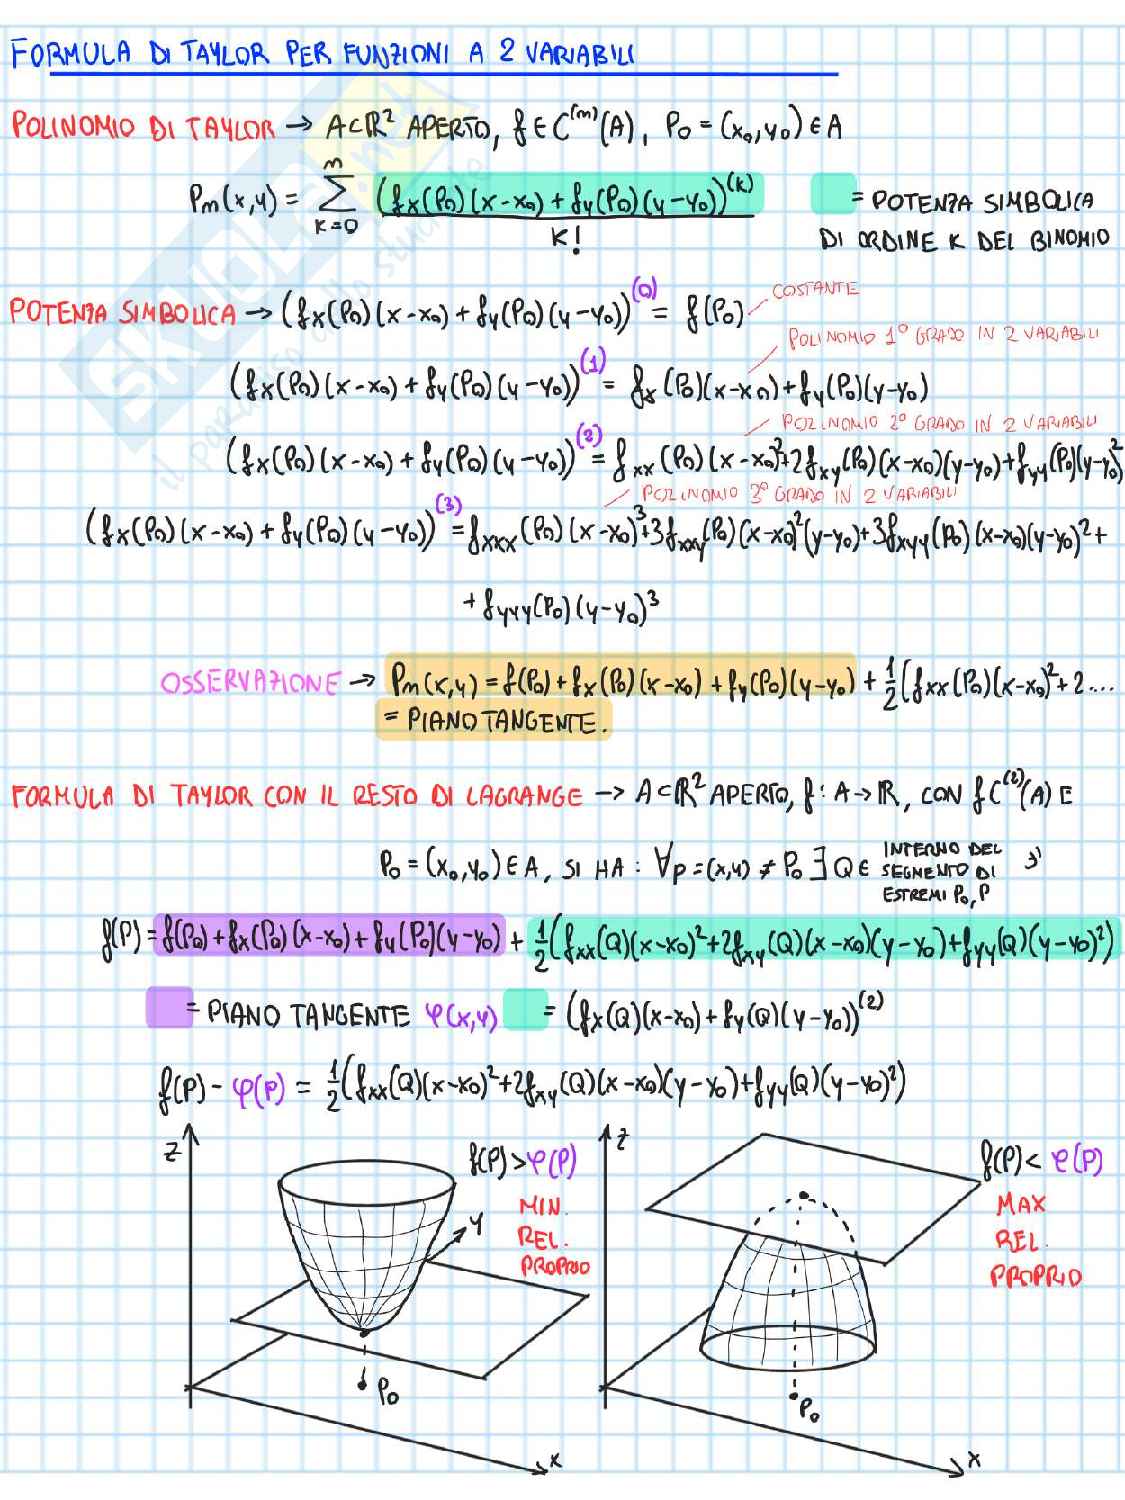 FORMULA DI TAYLOR PER FUNZIONI A 2 VARIABILI
POLINOMIO DI TAYLOR → A⊂ℝ² APERTO, f∈C⁽ᵐ⁾(A), P₀ = (x₀,y₀)∈A
Pm(x,y) = Σ_{K=0}^{m} (fx(P₀)(x-x₀)+fy(P₀)(y-y₀))^(K) / K!
= POTENZA SIMBOLICA
DI ORDINE K DEL BINOMIO
POTENZA SIMBOLICA → (fx(P₀)(x-x₀)+fy(P₀)(y-y₀))^(0) = f(P₀)
COSTANTE
POLINOMIO 1° GRADO IN 2 VARIABILI
(fx(P₀)(x-x₀)+fy(P₀)(y-y₀))^(1) = fx(P₀)(x-x₀)+fy(P₀)(y-y₀)
POLINOMIO 2° GRADO IN 2 VARIABILI
(fx(P₀)(x-x₀)+fy(P₀)(y-y₀))^(2) = fxx(P₀)(x-x₀)²+2fxy(P₀)(x-x₀)(y-y₀)+fyy(P₀)(y-y₀)²
POLINOMIO 3° GRADO IN 2 VARIABILI
(fx(P₀)(x-x₀)+fy(P₀)(y-y₀))^(3) = fxxx(P₀)(x-x₀)³+3fxxy(P₀)(x-x₀)²(y-y₀)+3fxyy(P₀)(x-x₀)(y-y₀)²+
+fyyy(P₀)(y-y₀)³
OSSERVAZIONE → Pm(x,y) = f(P₀)+fx(P₀)(x-x₀)+fy(P₀)(y-y₀)+1/2(fxx(P₀)(x-x₀)²+2....
= PIANO TANGENTE.
FORMULA DI TAYLOR CON IL RESTO DI LAGRANGE → A⊂ℝ² APERTO, f:A→ℝ, CON fC⁽²⁾(A) E
P₀ = (x₀,y₀)∈A, SI HA: ∀p=(x,y) ≠ P₀ ∃Q∈ INTERNO DEL
SEGMENTO DI
ESTREMI P₀,P
f(P) = f(P₀)+fx(P₀)(x-x₀)+fy(P₀)(y-y₀) + 1/2(fxx(Q)(x-x₀)²+2fxy(Q)(x-x₀)(y-y₀)+fyy(Q)(y-y₀)²)
= PIANO TANGENTE φ(x,y) = (fx(Q)(x-x₀)+fy(Q)(y-y₀))^(2)
f(P)-φ(P) = 1/2(fxx(Q)(x-x₀)²+2fxy(Q)(x-x₀)(y-y₀)+fyy(Q)(y-y₀)²)
z
f(P)>φ(P)
MIN.
REL.
PROPRIO
y
P₀
x
z
f(P)<φ(P)
MAX
REL.
PROPRIO
P₀
x
SKUOLA.net
il paradiso dello studente